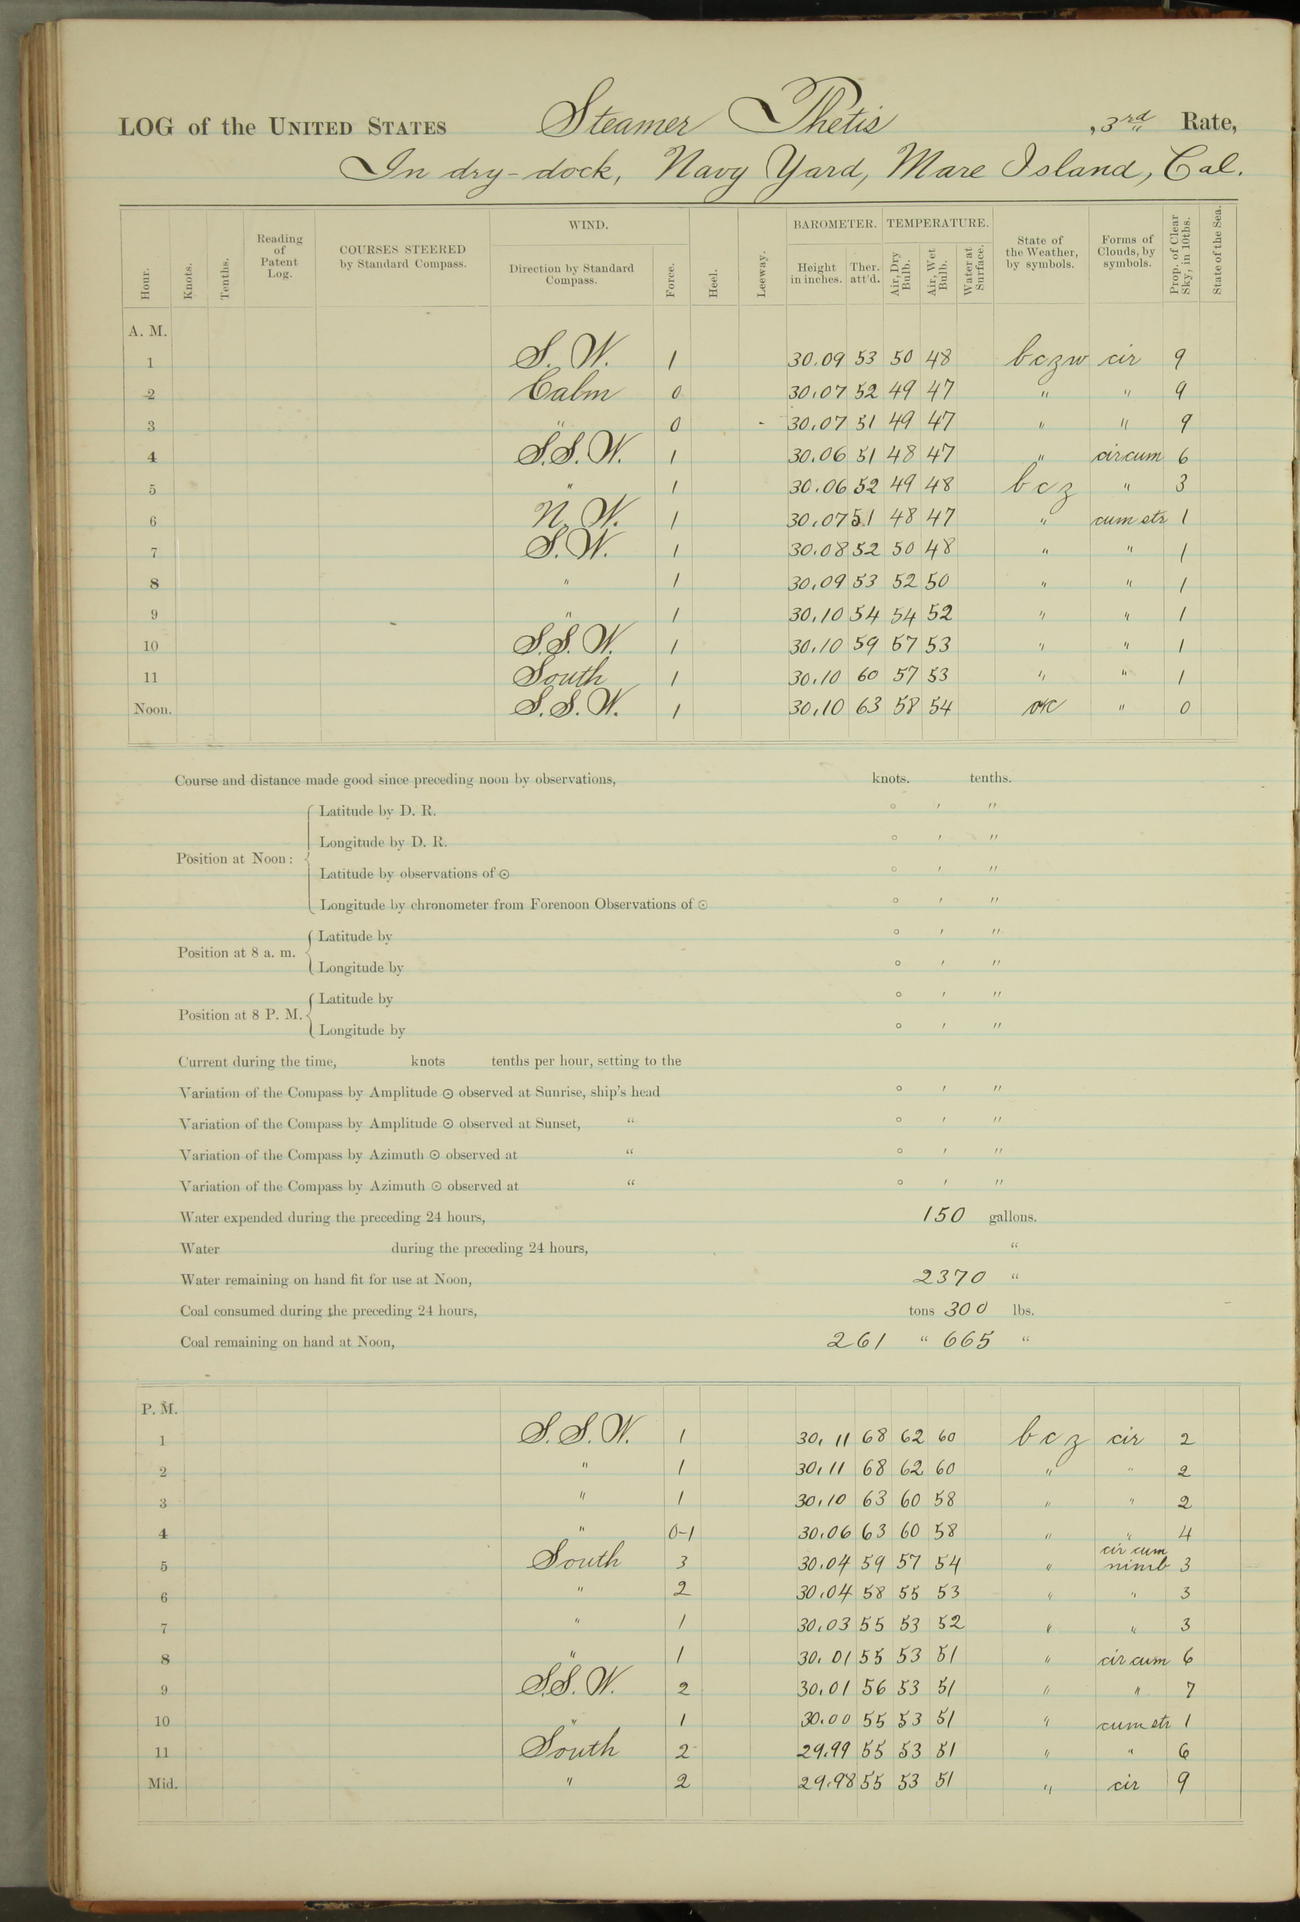 LOG of the UNITED STATES Steamer Thetis , 3rd Rate,
In dry-dock, Navy Yard, Mare Island, Cal.
Hour. Knots. Tenths. Reading of Patent Log. COURSES STEERED by Standard Compass. WIND. Direction by Standard Compass. Force. Heel. Leeway. BAROMETER. Height in inches. Ther. att'd. TEMPERATURE. Air, Dry Bulb. Air, Wet Bulb. Water at Surface. State of the Weather, by symbols. Forms of Clouds, by symbols. Prop. of Clear Sky, in 10ths. State of the Sea.
A. M.
1 S. W. 1 30.09 53 50 48 bczw cir 9
2 Calm 0 30.07 52 49 47 " " 9
3 " 0 30.07 51 49 47 " " 9
4 S.S.W. 1 30.06 51 48 47 " cir cum 6
5 " 1 30.06 52 49 48 bcz " 3
6 N. W. 1 30.07 51 48 47 " cum str 1
7 S.W. 1 30.08 52 50 48 " " 1
8 " 1 30.09 53 52 50 " " 1
9 " 1 30.10 54 54 52 " " 1
10 S.S.W. 1 30.10 59 57 53 " " 1
11 South 1 30.10 60 57 53 " " 1
Noon. S.S.W. 1 30.10 63 58 54 " 0
Course and distance made good since preceding noon by observations, knots. tenths.
Latitude by D. R. ° ′ ″
Longitude by D. R. ° ′ ″
Position at Noon:
Latitude by observations of ☉ ° ′ ″
Longitude by chronometer from Forenoon Observations of ☉ ° ′ ″
Latitude by ° ′ ″
Position at 8 a. m.
Longitude by ° ′ ″
Latitude by ° ′ ″
Position at 8 P. M.
Longitude by ° ′ ″
Current during the time, knots tenths per hour, setting to the
Variation of the Compass by Amplitude ☉ observed at Sunrise, ship's head ° ′ ″
Variation of the Compass by Amplitude ☉ observed at Sunset, " ° ′ ″
Variation of the Compass by Azimuth ☉ observed at " ° ′ ″
Variation of the Compass by Azimuth ☉ observed at " ° ′ ″
Water expended during the preceding 24 hours, 150 gallons.
Water during the preceding 24 hours, "
Water remaining on hand fit for use at Noon, 2370 "
Coal consumed during the preceding 24 hours, tons 300 lbs.
Coal remaining on hand at Noon, 261 " 665 "
P. M.
1 S. S. W. 1 30.11 68 62 60 bcz cir 2
2 " 1 30.11 68 62 60 " " 2
3 " 1 30.10 63 60 58 " " 2
4 " 0-1 30.06 63 60 58 " " 4
5 South 3 30.04 59 57 54 " cir cum nimb 3
6 " 2 30.04 58 55 53 " " 3
7 " 1 30.03 55 53 52 " " 3
8 " 1 30.01 55 53 51 " cir cum 6
9 S.S.W. 2 30.01 56 53 51 " " 7
10 " 1 30.00 55 53 51 " cum str 1
11 South 2 29.99 55 53 51 " " 6
Mid. " 2 29.98 55 53 51 " cir 9